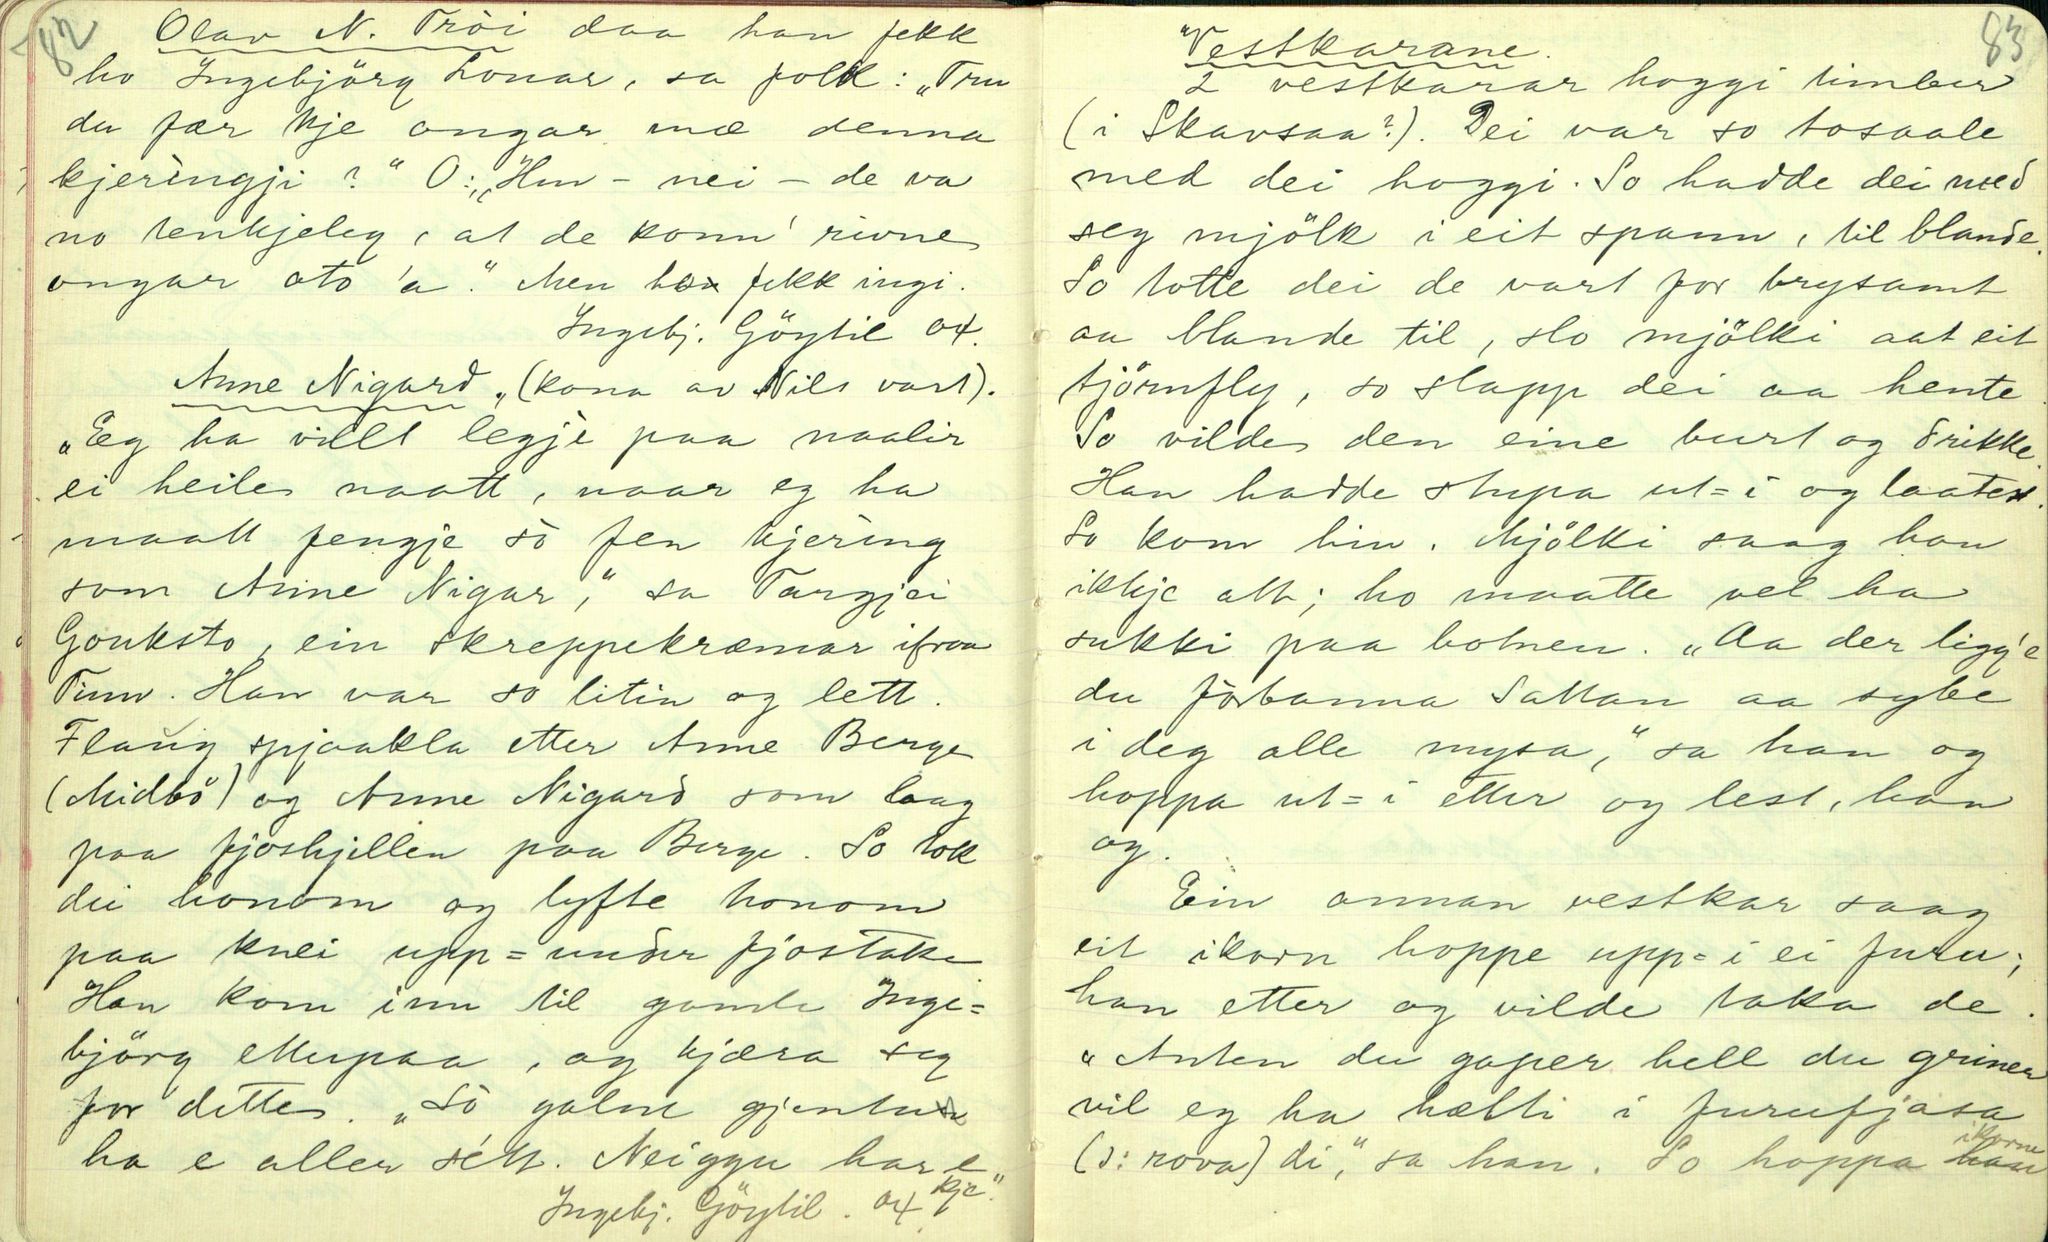 82
Olav N. Tròi daa han fekk
ho Ingebjörg Lonar, sa folk: „Tru
du fær kje ongar mæ denna
kjeringji?" O: „Hm – nei – de va
no tenkjeleg, at de konn' rivne
ongar oto 'a." Men han fekk ingi.
Ingebj. Göytil 04.
Anne Nigard „(kona av Nils vart).
„Eg ha villt legje paa naalir
ei heile naatt, naar eg ha
maatt fengje sò fen kjering
som Anne Nigar," sa Targjei
Gouksto, ein skreppekræmar ifraa
Tinn. Han var so litin og lett.
Flaug spjaakla etter Anne Berge
(Midbö) og Anne Nigard som laag
paa fjoshjellen paa Berge. So tok
dei honom og lyfte honom
paa knei upp=under fjostake
Han kom inn til gamle Inge=
björg etterpaa, og kjæra seg
for dette. „Sò galne gjentur
ha e aller sétt. Neiggu har e
kje."
Ingebj. Göytil. 04
83
"Vestkarane.
2 vestkarar hoggi timber
(i Skavsaa?). Dei var so tosaale
med dei hoggi. So hadde dei med
seg mjölk i eit spann, til blande.
So totte dei de vart for brysamt
aa blande til, slo mjölki aat eit
tjörnfly, so slapp dei aa hente.
So vilde den eine burt og drikke.
Han hadde stupa ut=i og laatest.
So kom hin. Mjölki saag han
ikkje att; ho maatte vel ha
sukki paa botnen. „Aa der ligg'e
du forbanna Sattan aa sybe
i deg alle mysa," sa han og
hoppa ut=i etter og lest, han
og.
Ein annan vestkar saag
eit ikorn hoppe upp=i ei furu;
han etter og vilde taka de.
„Anten du gaper hell du griner
vil eg ha hætti i furufjasa
(ɔ: rova) di," sa han. So hoppa ikorne
han